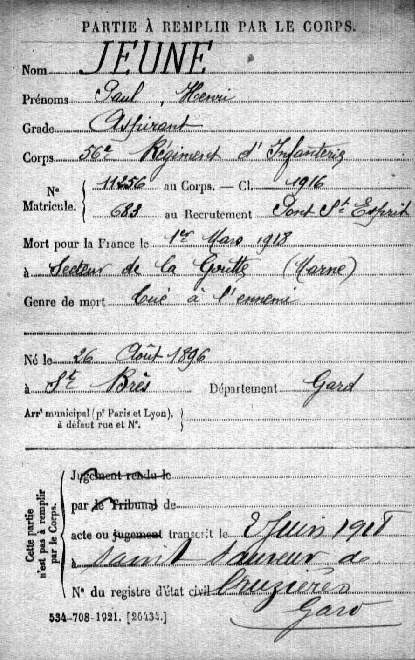 PARTIE À REMPLIR PAR LE CORPS.
Nom JEUNE
Prénoms Paul, Henri
Grade Aspirant
Corps 56e Régiment d'Infanterie
N° Matricule. 11256 au Corps. — Cl. 1916
683 au Recrutement Pont St Esprit
Mort pour la France le 1er Mars 1918
à Secteur de la Goutte (Marne)
Genre de mort tué à l'ennemi
Né le 26 Août 1896
à St Brès Département Gard
Arrt municipal (pr Paris et Lyon), à défaut rue et N°.
Cette partie n'est pas à remplir par le Corps.
Jugement rendu le
par le Tribunal de
acte ou jugement transcrit le 2 Juin 1918
à Saint Sauveur de
N° du registre d'état civil Cruzières
Gard
534-708-1921. [26434.]